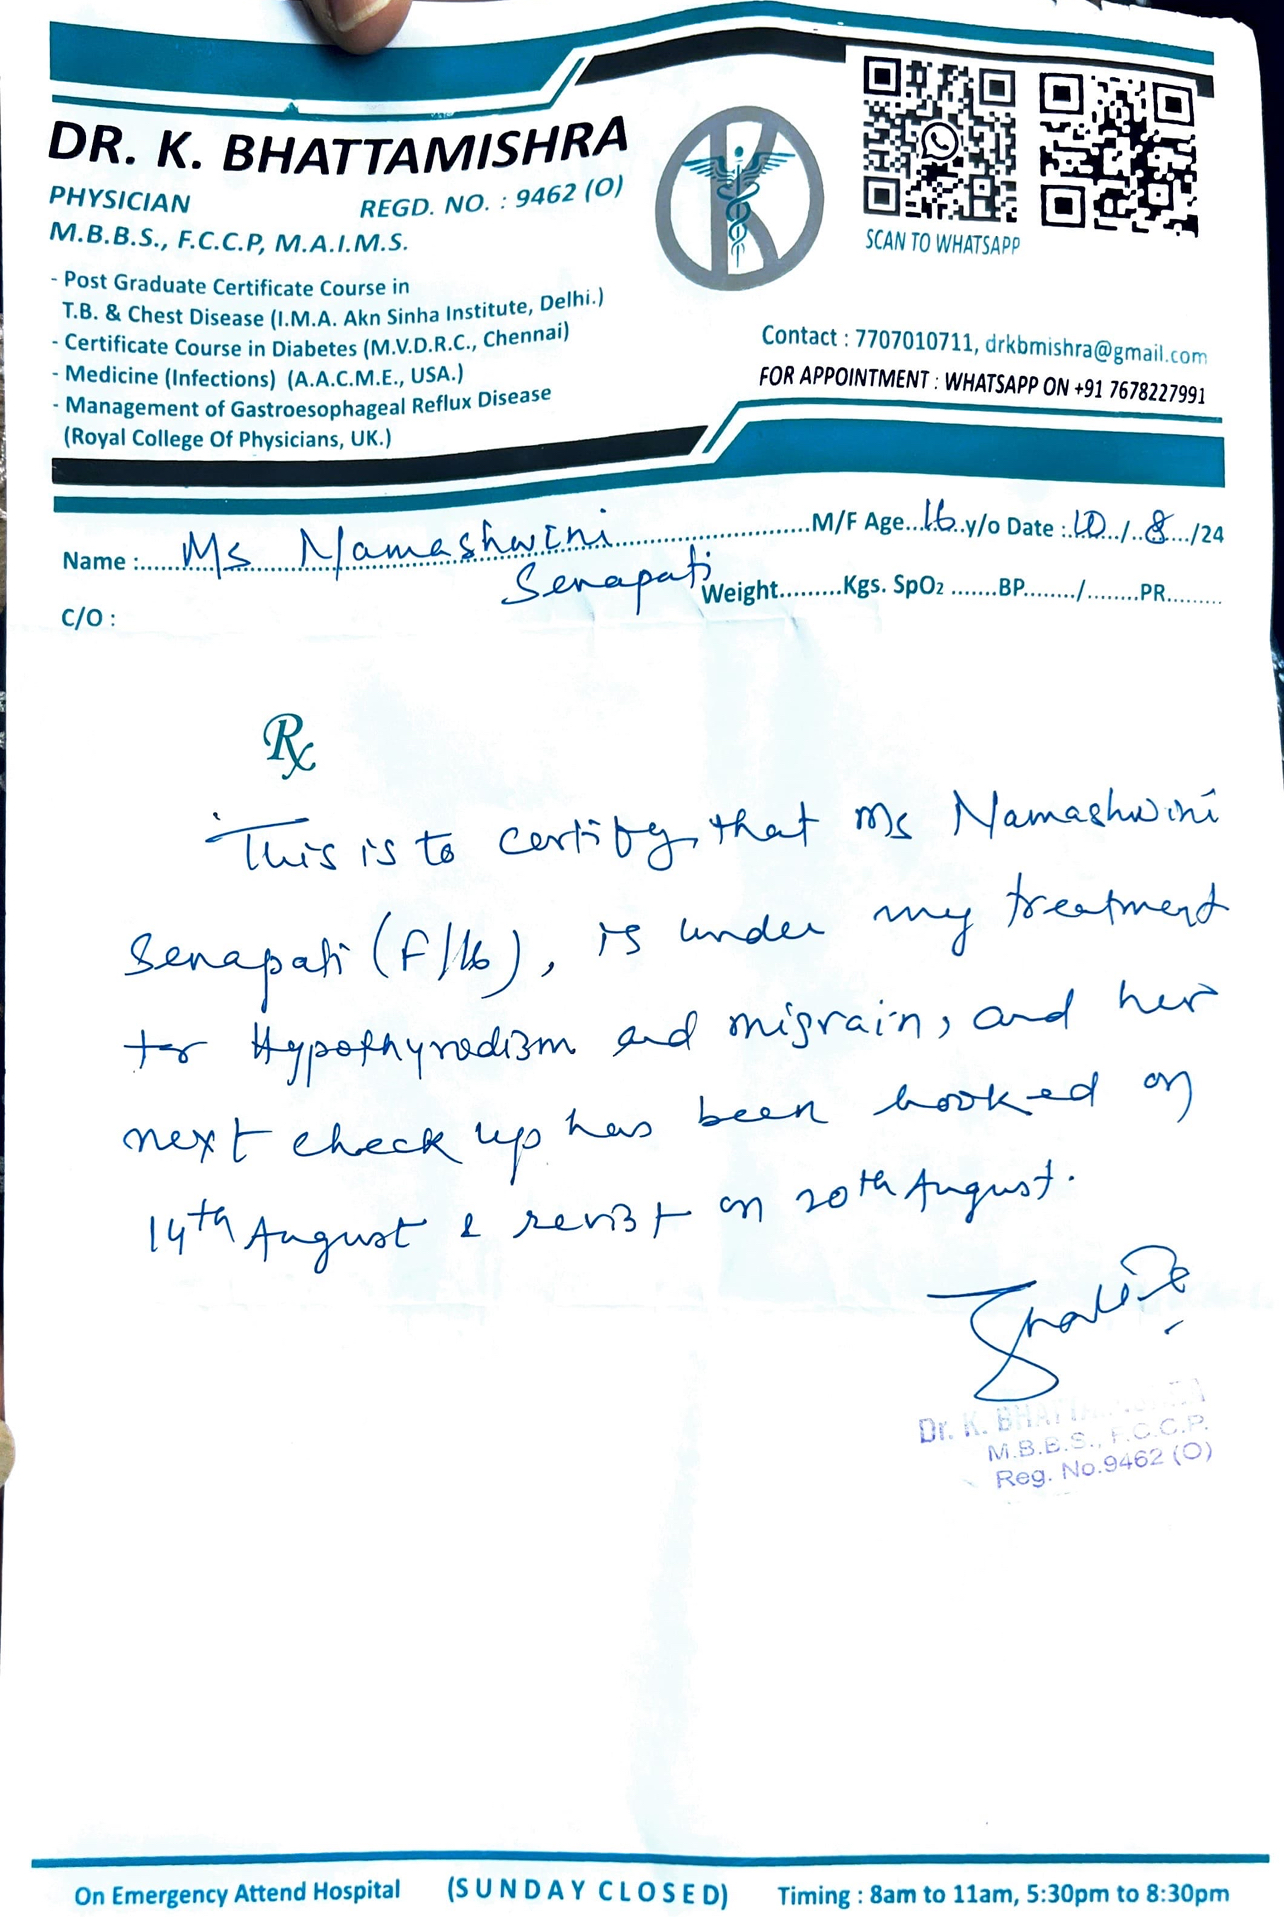 DR. K. BHATTAMISHRA
PHYSICIAN REGD. NO. : 9462 (O)
M.B.B.S., F.C.C.P, M.A.I.M.S.
- Post Graduate Certificate Course in
T.B. & Chest Disease (I.M.A. Akn Sinha Institute, Delhi.)
- Certificate Course in Diabetes (M.V.D.R.C., Chennai)
- Medicine (Infections) (A.A.C.M.E., USA.)
- Management of Gastroesophageal Reflux Disease
(Royal College Of Physicians, UK.)
SCAN TO WHATSAPP
Contact : 7707010711, drkbmishra@gmail.com
FOR APPOINTMENT : WHATSAPP ON +91 7678227991
Name :..... Ms Namashwini ..........M/F Age...16..y/o Date :.10../..8.../24
Senapati
Weight.........Kgs. SpO2 .......BP......../........PR.........
C/O :
Rx
This is to certify, that Ms Namashwini
Senapati (F/16), is under my treatment
for Hypothyrodism and migrain, and her
next check up has been booked on
14th August & revist on 20th August.
Dr. K. BHATTAMISHRA
M.B.B.S., F.C.C.P.
Reg. No.9462 (O)
On Emergency Attend Hospital (SUNDAY CLOSED) Timing : 8am to 11am, 5:30pm to 8:30pm